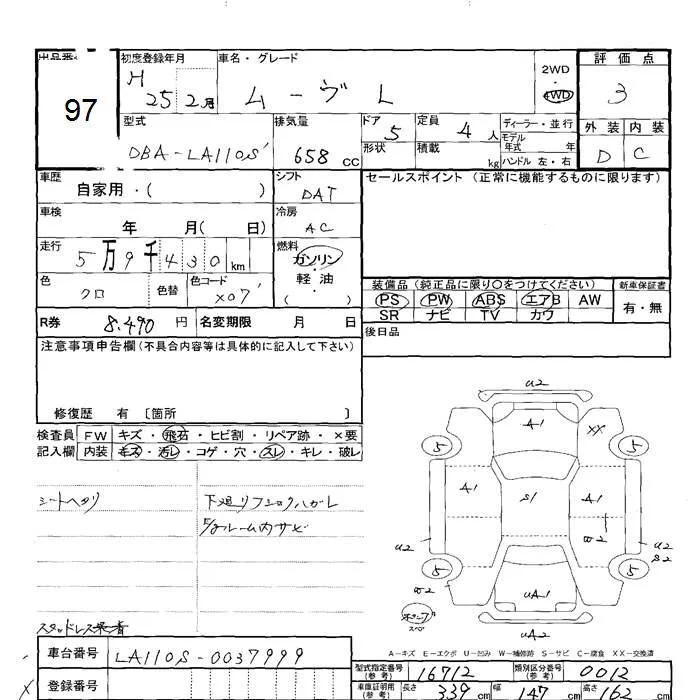 出品番
97
初度登録年月
H 25 2月
車名・グレード
ムーヴ L
2WD
・
4WD
評価点
3
外装 内装
D C
型式
DBA-LA110S
排気量
658 CC
ドア 5
形状
定員 4 人
積載 kg
ディーラー・並行
モデル
年式 年
ハンドル 左・右
車歴
自家用・( )
シフト
DAT
セールスポイント (正常に機能するものに限ります)
車検
年 月( 日)
冷房
AC
走行
5万9千430 km
燃料
ガソリン
・
軽油
・( )
色
クロ
色替
色コード
X07
装備品 (純正品に限り○をつけてください)
PS PW ABS エアB AW
SR ナビ TV カワ
新車保証書
有・無
R券 8,490 円
名変期限 月 日
後日品
注意事項申告欄(不具合内容等は具体的に記入して下さい)
修復歴 有 〔箇所 〕
検査員
記入欄
FW キズ・飛石・ヒビ割・リペア跡・×要
内装 キズ・汚れ・コゲ・穴・スレ・キレ・破レ
シートヘタリ
下廻リフショクハガレ
スタッドレス装着
U2
A1
XX
5
5
A1
S1
A1
U2
W2
U2
S2
5
5
W2
UA1
UA2
A-キズ E-エクボ U-凹み W-補修跡 S-サビ C-腐食 XX-交換済
車台番号 LA110S-0037999
登録番号
型式指定番号
(参考)
16712
類別区分番号
(参考)
0012
車庫証明用
(参考)
長さ 339 cm
幅 147 cm
高さ 162 cm